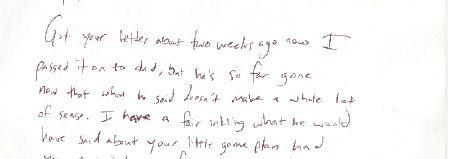 Got your letter about two weeks ago now I
passed it on to dad, but he's so far gone
now that what he said doesn't make a whole lot
of sense. I have a fair inkling what he would
have said about your little game plan had